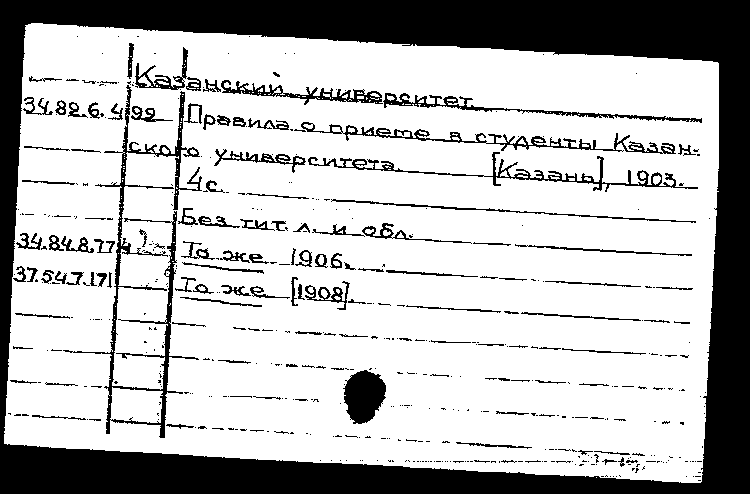 Казанский университет
34.82.6.492 Правила о приеме в студенты Казан-
ского университета. [Казань], 1903.
4с.
Без тит. л. и обл.
34.84.8.774 То же 1906.
37.54.7.171 То же [1908].